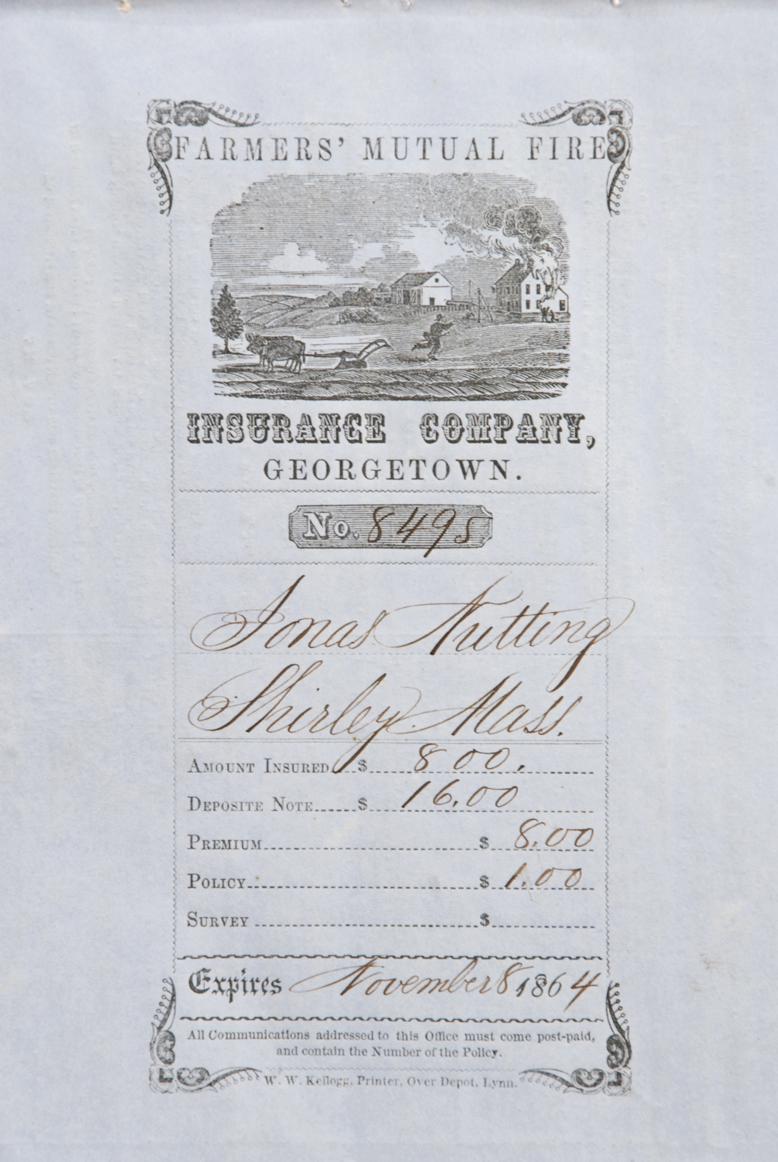 FARMERS' MUTUAL FIRE
INSURANCE COMPANY,
GEORGETOWN.
No. 8495
Jonas Nutting
Shirley Mass.
AMOUNT INSURED $ 800.
DEPOSITE NOTE $ 16.00
PREMIUM $ 8.00
POLICY $ 1.00
SURVEY $
Expires November 8 1864
All Communications addressed to this Office must come post-paid,
and contain the Number of the Policy.
W. W. Kellogg, Printer, Over Depot, Lynn.